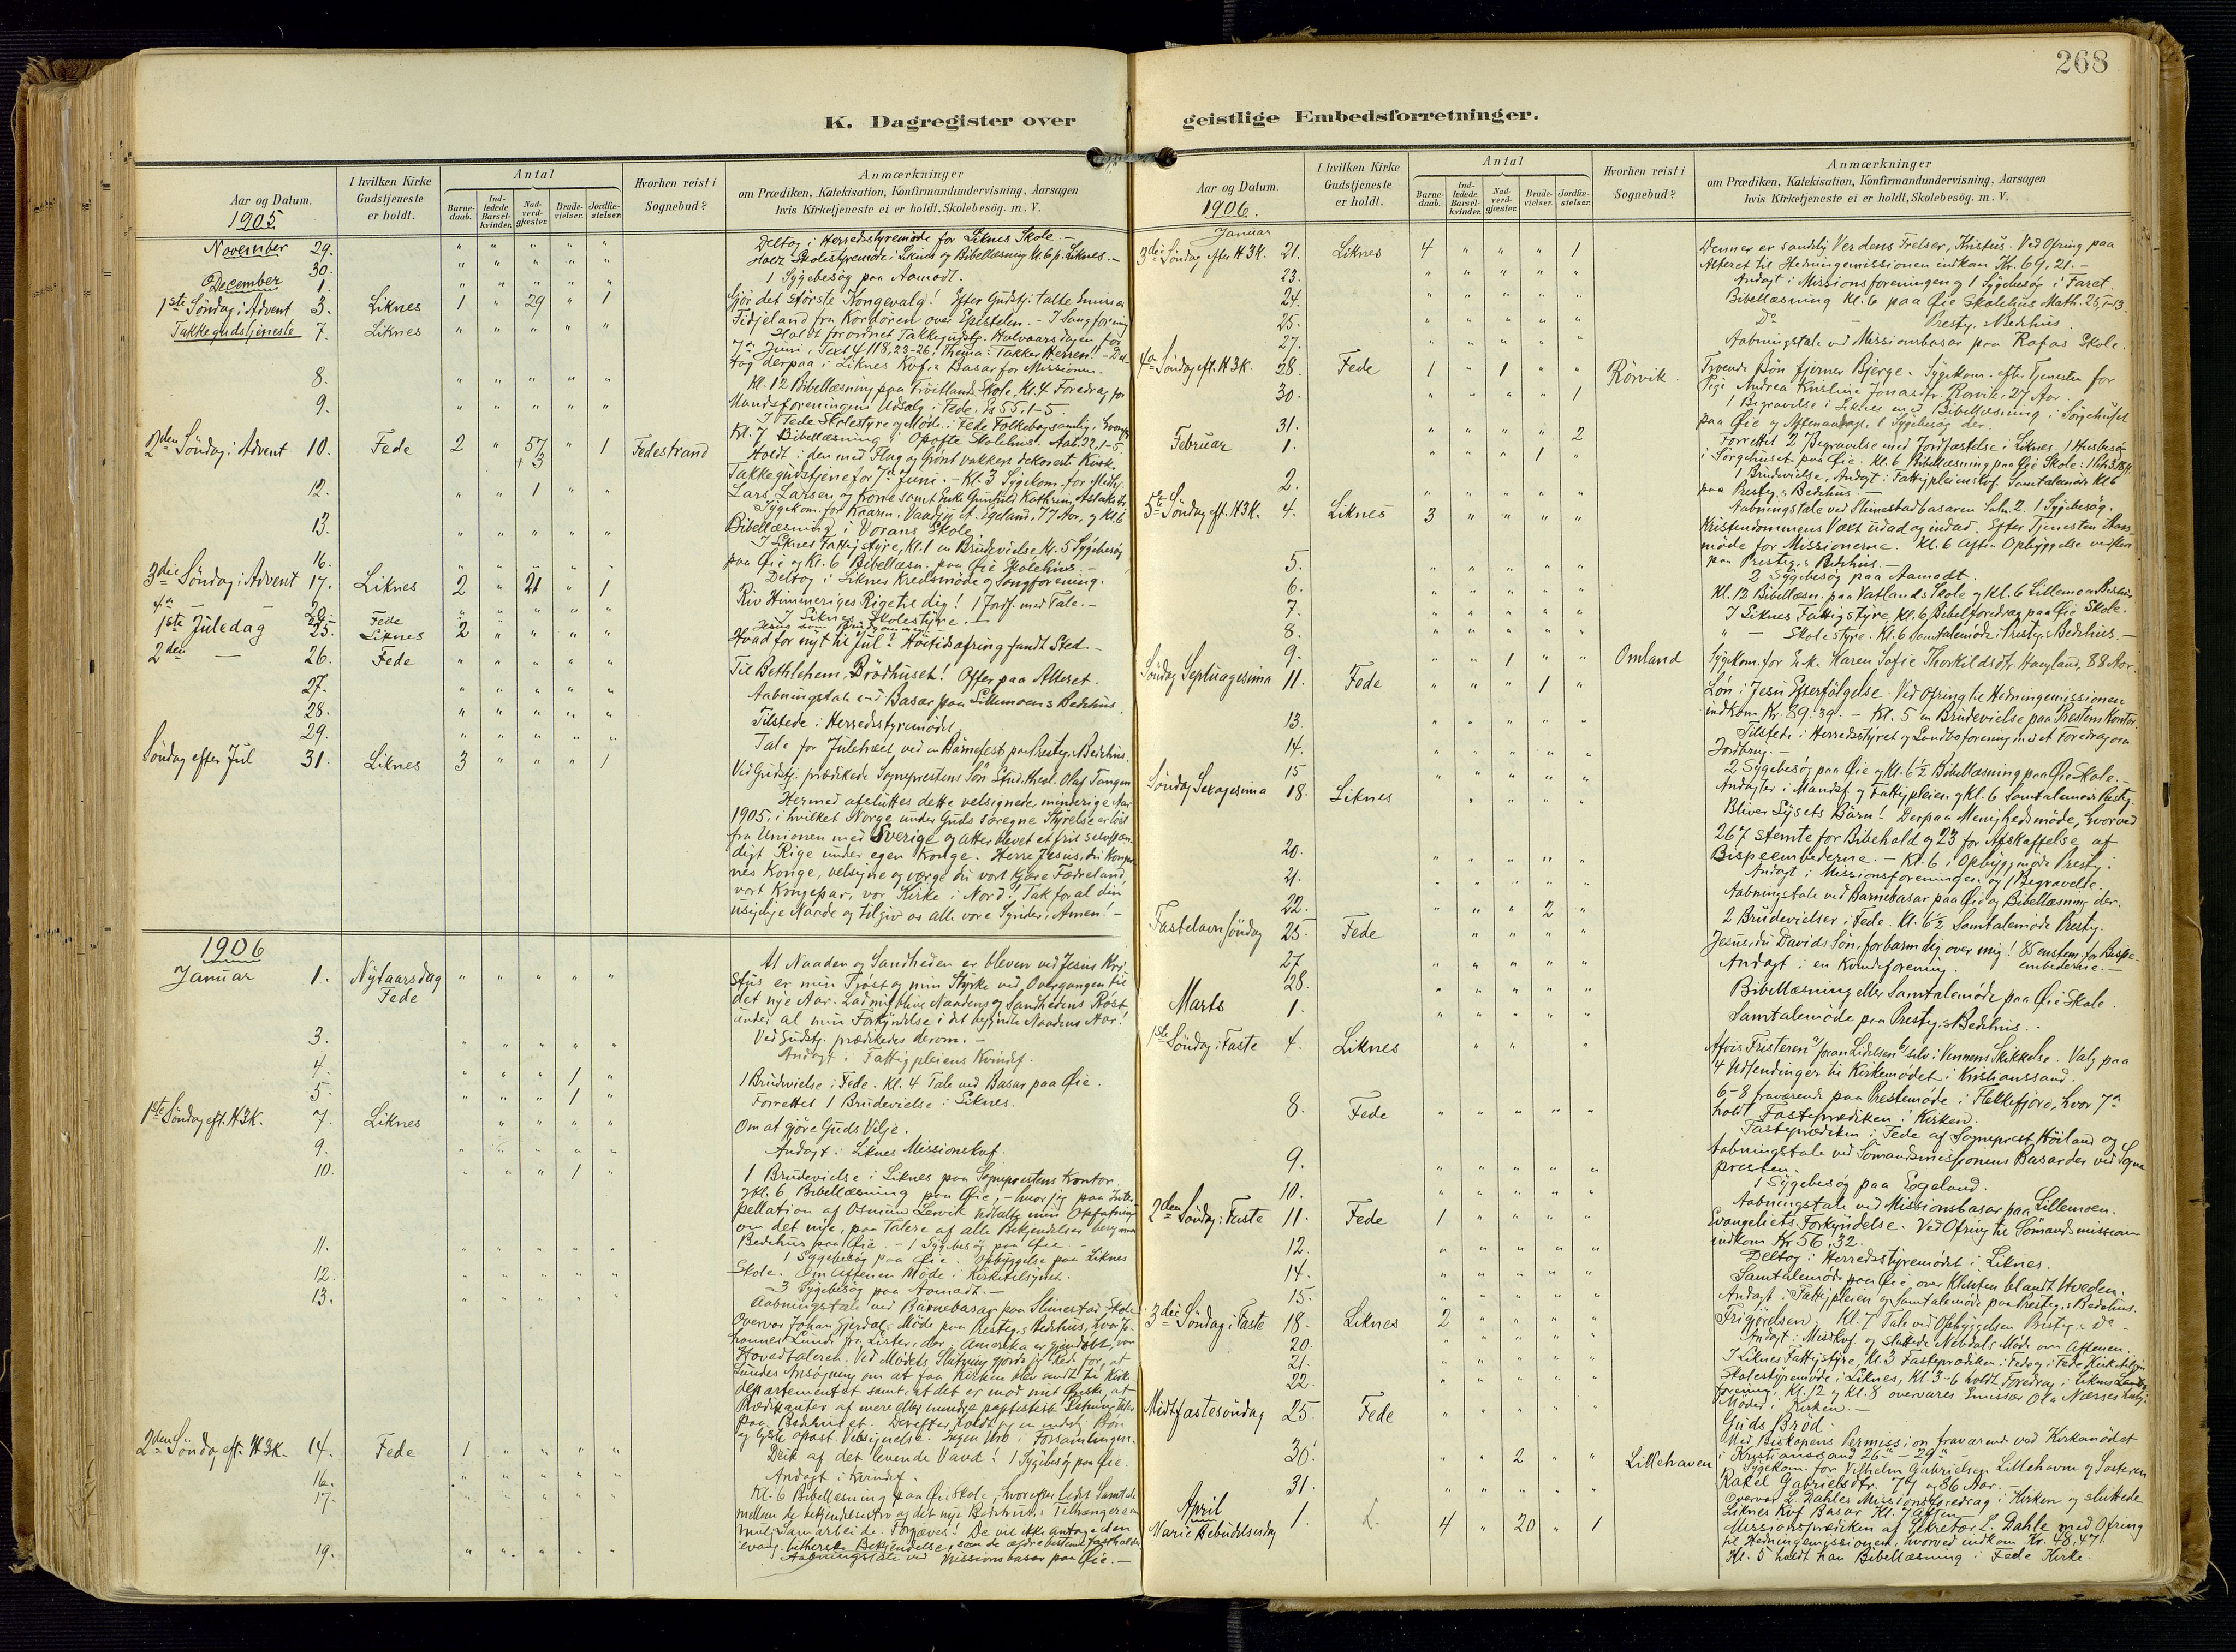 268
K. Dagregister over geistlige Embedsforretninger.
Aar og Datum.
1905
I hvilken Kirke Gudstjeneste er holdt.
Antal
Barne-daab.
Ind-ledede Barsel-kvinder.
Nad-verd-gjæster.
Brude-vielser.
Jordfæ-stelser.
Hvorhen reist i Sognebud?
Anmærkninger
om Prædiken, Katekisation, Konfirmandundervisning, Aarsagen
hvis Kirketjeneste ei er holdt, Skolebesög. m. V.
November 29. " " " " " Deltog i Herredsstyremøde for Liknes Skole. –
30. " " " " " Skolestyremøde i Liknes og Bibellæsning Kl. 6 p. Liknes. –
December 1. " " " " " 1 Sygebesøg paa Aamodt.
1ste Søndag i Advent 3. Liknes 1 " 29 " 1 Gjør det største Kongevalg! Efter Gudstj. talte Emissær
Fidjeland fra Kordøren over Epistelen. – I Sangforening
Takkegudstjeneste 7. Liknes " " " " " Holdt forordnet Takkegudstj. Halvaarsdagen for
7de Juni, Text 4 118, 23-26; Thema: Takker Herren!! – Del-
tog derpaa i Liknes Kvf.s Basar for Missionen.
8. " " " " " Kl. 12 Bibellæsning paa Skole, Kl. 4 Foredrag for
9. " " " " " Mandsforeningens Udsalg i Fede. Es 55, 1-5.
I Fede Skolestyre og Møde i Fede Folkebogsamling,
Kl. 7 Bibellæsning i Opofte Skolehus. Aab. 22, 1-5.
2den Søndag i Advent 10. Fede 2 " 57 + 3 " 1 Fedestrand Holdt i den med Flag og Grønt vakkert dekorerte Kirke
Takkegudstjeneste for 7de Juni. – Kl. 3 Sygekom. for
Lars Larsen og Kone samt Enke Gunhild Kathrine
12. " " 1 " " Sygekom. for Karen, Egeland, 77 Aar, og Kl. 6
Bibellæsning i Vorans Skole
13. " " " " " I Liknes Fattigstyre, Kl. 1 en Brudevielse, Kl. 5 Sygebesøg
paa Øie og Kl. 6 Bibellæsn. paa Øie Skolehus. –
16. " " " " " Deltog i Liknes Kredsmøde og Sangforening.
3die Søndag i Advent 17. Liknes 2 " 21 " 1 Riv Himmeriges Rige til dig! 1 Jordf. med Tale. –
20. " " " " " I Liknes Skolestyre. –
4de – Fede Jesus som Brudgommen
1ste Juledag 25. Liknes 2 " " " " Hvad for nyt til Jul? Høitidsofring fandt Sted. –
2den — 26. Fede " " " " " Til Bethlehem, Brødhuset! Offer paa Alteret.
27. " " " " " Aabningstale ved Basar paa Lillemoens Bedehus.
28. " " " " " Tilstede i Herredsstyremødet.
29. " " " " " Tale for Juletræet ved en Barnefest paa Presteg.s Bedehus.
Søndag efter Jul 31. Liknes 3 " " " 1 Ved Gudstj. prædikede Sogneprestens Søn Stud. theol. Olaf Tangen
Hermed afsluttes dette velsignede, minderige Aar
1905, i hvilket Norge under Guds særegne Styrelse er løst
fra Unionen med Sverige og atter blevet et frit selvstæn-
digt Rige under egen Konge. Herre Jesus, du Konger-
nes Konge, velsigne og værge du vort kjære Fædreland,
vort Kongepar, vor Kirke i Nord! Tak for al din
usigelige Naade og tilgiv os alle vore Synder; Amen! –
1906
Januar 1. Nytaarsdag Fede " " " " " At Naaden og Sandheden er bleven ved Jesus Kri-
stus er min Trøst og min Styrke ved Overgangen til
det nye Aar. Lad mig blive Naadens og Sandhedens Røst
under al min Forkyndelse i det begyndte Naadens Aar!
Ved Gudstj. prædikedes derom. –
3. " " " " " Andagt i Fattigpleiens Kvindef.
4. " " " 1 " 1 Brudevielse i Fede. Kl. 4 Tale ved Basar paa Øie.
5. " " " 1 " Forrettet 1 Brudevielse i Liknes.
1ste Søndag eft. H3K. 7. Liknes " " " " Om at gjøre Guds Vilje.
9. " " " " " Andagt i Liknes Missionskvf.
10. " " " 1 " 1 Brudevielse i Liknes paa Sogneprestens Kontor
og Kl. 6 Bibellæsning paa Øie, – hvor jeg paa Inter-
pellation af Osmund Lervik udtalte min Opfatning
om det nye, paa Talere af alle Bekjendelser
Bedehus paa Øie. – 1 Sygebesøg paa Øie –
11. " " " " " 1 Sygebesøg paa Øie. Opbyggelse paa Liknes
Skole. Om Aftenen Møde i Kirketilsynet.
12. " " " " " 3 Sygebesøg paa Aamodt. –
13. " " " " " Aabningstale ved Barnebasar paa Slimestad Skole.
Overvar Johan Gjerdals Møde paa Presteg.s Bedehus, hvor Jo-
hannes Lunde fra Lister, der i Amerika er gjendøbt, var
Hovedtaleren. Ved Mødets Slutning gjorde jeg Rede for, at
Lundes Ansøgning om at faa Kirken blev sendt til Kirke-
departementet samt, at det er mod mit Ønske, at
Prædikanter af mere eller mindre baptistisk Retning taler
paa Bedehuset. Derefter holdt jeg en Bøn
og lyste apost. Velsignelse. Ingen Uro i Forsamlingen.
2den Søndag eft. H3K. 14. Fede 1 " " " " Drik af det levende Vand! 1 Sygebesøg paa Øie.
16. " " " " " Andagt i Kvindef.
17. " " " " " Kl. 6 Bibellæsning paa Øie Skole, hvorefter lidt Samtale
mellem de bekjendelsestro og det nye Bedehus's Tilhængere om
mulig Samarbeide. Forgjæves! De vil ikke antage den
evang. lutherske Bekjendelse, som de ældre bestemt fastholder
19. " " " " " Aabningstale ved Missionsbasar paa Øie. –
Aar og Datum.
1906.
I hvilken Kirke Gudstjeneste er holdt.
Antal
Barne-daab.
Ind-ledede Barsel-kvinder.
Nad-verd-gjæster.
Brude-vielser.
Jordfæ-stelser.
Hvorhen reist i Sognebud?
Anmærkninger
om Prædiken, Katekisation, Konfirmandundervisning, Aarsagen
hvis Kirketjeneste ei er holdt, Skolebesög. m. V.
Januar
3die Søndag efter H3K. 21. Liknes 4 " " " 1 Denne er sandelig Verdens Frelser, Kristus. Ved Ofring paa
Alteret til Hedningemissionen indkom Kr. 69,21. –
23. " " " " " Andagt i Missionsforeningen og 1 Sygebesøg i Faret.
24. " " " " " Bibellæsning Kl. 6 paa Øie Skolehus Math. 25, 1-13.
25. " " " " " Do – Presteg.s Bedehus.
27. " " " " " Aabningstale ved Missionsbasar paa Rafos Skole.
4de Søndag eft. H3K. 28. Fede 1 " 1 " " Rørvik. Troende Bøn fjerner Bjerge. Sygekom. efter Tjenesten for
Pige Andrea Kristine Jonasdtr. Rørvik, 27 Aar.
30. " " " " 1 1 Begravelse i Liknes med Bibellæsning i Sørgehuset
paa Øie og Aftenandagt. 1 Sygebesøg der.
31. " " " " 2 Forrettet 2 Begravelse med Jordfæstelse i Liknes, 1 Husbesøg
i Sørgehuset paa Øie. Kl. 6 Bibellæsning paa Øie Skole:
Februar 1. " " " 1 " 1 Brudevielse, Andagt i Fattigpleienskvf. Samtalemøde Kl. 6
paa Presteg.s Bedehus. –
2. " " " " " Aabningstale ved Slimestadbasaren Salm. 2. 1 Sygebesøg.
5te Søndag eft. H3K. 4. Liknes 3 " " " " Kristendommens Væxt udad og indad. Efter Tjenesten Aars-
møde for Missionerne. Kl. 6 Aften Opbyggelse
paa Presteg.s Bedehus. –
5. " " " " " 2 Sygebesøg paa Aamodt.
6. " " " " " Kl. 12 Bibellæsn. paa Vatlands Skole og Kl. 6 Lillemoen Bedehus
7. " " " " " I Liknes Fattigstyre, Kl. 6 Bibelforedrag paa Øie Skole.
8. " " " " " " – Skolestyre. Kl. 6 Samtalemøde i Presteg.s Bedehus. –
9. " " 1 " " Omland Sygekom. for Enk. Karen Sofie Thorkildsdtr. Haugland, 88 Aar.
Søndag Septuagesima 11. Fede " " " 1 " Løn i Jesu Efterfølgelse. Ved Ofring til Hedningemissionen
indkom Kr. 89.39. – Kl. 5 en Brudevielse paa Prestens Kontor.
13. " " " " " Tilstede i Herredsstyret og Landboforening med et Foredrag om
Jordbrug. –
14. " " " " " 2 Sygebesøg paa Øie og Kl. 6½ Bibellæsning paa Øie Skole. –
15 " " " " " Andagter i Mandsf. og Fattigpleien og Kl. 6 Samtalemøde Presteg.
Søndag Sexagesima 18. Liknes " " " Bliver Lysets Børn! Derpaa Menighedsmøde, hvorved
267 stemte for Bibehold og 23 for Afskaffelse af
Bispeembederne. – Kl. 6 i Opbyggmøde Presteg.
20. " " " " " Andagt i Missionsforeningen og 1 Begravelse.
21. " " " " " Aabningstale ved Barnebasar paa Øie og Bibellæsning der.
22. " " " 2 " 2 Brudevielser i Fede. Kl. 6½ Samtalemøde Presteg.
Fastelavn Søndag 25. Fede " " " " Jesus, du Davids Søn, forbarm dig over mig! 85 enstem. for Bispe-
embederne. –
27 " " " " " Andagt i en Kvindeforening.
28. " " " " " Bibellæsning eller Samtalemøde paa Øie Skole.
Marts 1. " " " " " Samtalemøde paa Presteg.s Bedehus. –
1ste Søndag i Faste 4. Liknes " " " Afvis Fristeren a) foran Lidelsen b) selv i Vennens Skikkelse. Valg paa
4 Udsendinger til Kirkemødet i Kristianssand.
6-8 fraværende paa Prestemøde i Flekkefjord, hvor 7de
holdt Fasteprædiken i Kirken.
8. Fede " " " " " Fasteprædiken i Fede af Sogneprest Høiland og
Aabningstale ved Sømandsmissionens Basar der ved Sogne-
presten.
9. " " " " " 1 Sygebesøg paa Egeland.
10. " " " " " Aabningstale ved Missionsbasar paa Lillemoen.
2den Søndag i Faste 11. Fede 1 " " " " Evangeliets Forkyndelse. Ved Ofring til Sømandsmissionen
indkom Kr 56,32.
12. " " " " " Deltog i Herredsstyremødet i Liknes.
14. " " " " " Samtalemøde paa Øie over Klinten blandt Hveden.
15. " " " " " Andagt i Fattigpleien og Samtalemøde paa Presteg.s Bedehus.
3die Søndag i Faste 18. Liknes 2 " " " " Frigjørelsen. Kl. 7 Tale ved Opbyggelsen Presteg.s Do –
20. " " " " " Andagt i Misskvf. og sluttede Nebdals Møde om Aftenen.
21. " " " " " I Liknes Fattigstyre, Kl. 3 Fasteprædiken i Fede og i Fede Kirketilsyn
22. " " " " " Skolestyremøde i Liknes, Kl. 3-6 holdt Foredrag i Liknes
forening, Kl. 12 og Kl. 8 overvares Emissær Ola Næsses
Møder i Kirken. –
Midtfastesøndag 25. Fede " " " " " Guds Brød.
Med Biskopens Permission fraværende ved Kirkemødet
i Kristianssand 26de – 29de
30. " " 2 " " Lillehaven Sygekom. for Vilhelm Gabrielsen Lillehavn og Søsteren
Rakel Gabrielsdtr. 74 og 36 Aar. –
31. " " " " " Overvar L. Dahles Missionsforedrag i Kirken og sluttede
Liknes Kvf. Basar Kl. 7 Aften.
April 1. Marie Bebudelsesdag L. 4 " 20 " 1 Missionsprædiken af Sekretær L. Dahle med Ofring
til Hedningemissionen, hvorved indkom Kr. 48,47.
Kl. 5 holdt han Bibellæsning i Fede Kirke.